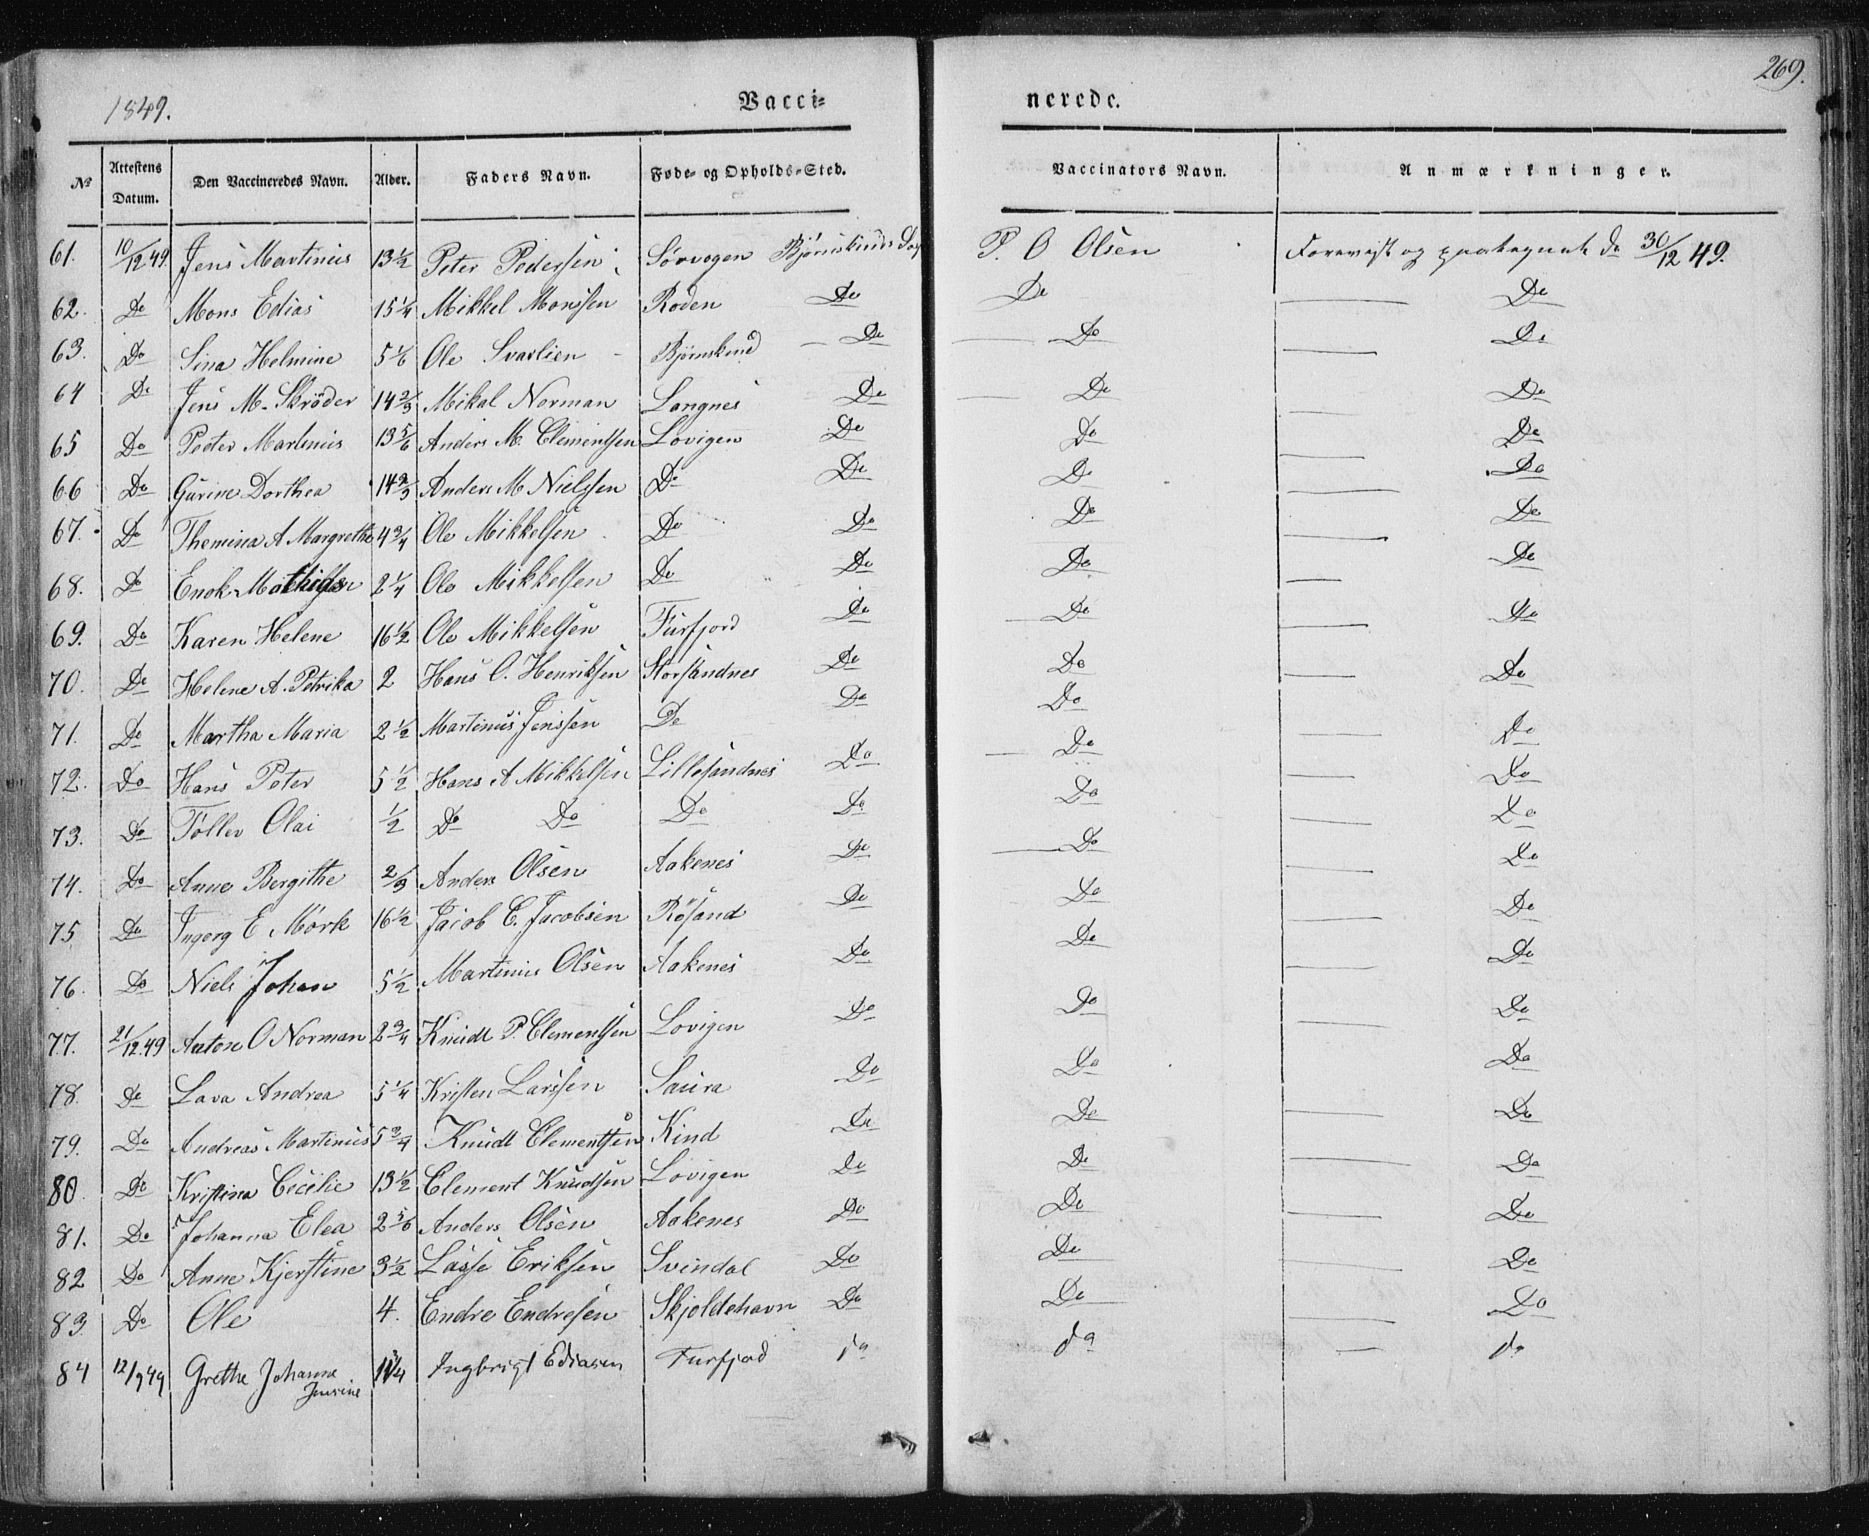 1849. Vacci= nerede. 269.
No Attestens Datum. Den Vaccineredes Navn. Alder. Faders Navn. Føde- og Opholds-Sted. Vaccinators Navn. Anmærkninger.
61. 10/12 49. Jens Martinus 13 1/2 Peter Pedersen Sørvogen P. O Olsen Forevist og paategnet do 30/12 49.
62. Do Mons Edias 15 1/4 Mikkel Monssen Roden Do Do Do
63. Do Sina Helmine 5 1/6 Ole Svarlien Bjørnskind Do Do Do
64 Do Jens M. Skrøder 14 2/3 Mikal Norman Langnes Do Do Do
65 Do Peder Martinus 13 5/6 Anders M. Clementsen Lovigen Do Do Do
66 Do Gurine Dorthea 14 2/3 Anders M Nielssen Do Do Do Do
67. Do Themina A Margrethe 4 3/4 Ole Mikkelsen Do Do Do Do
68. Do Enok 2 1/4 Ole Mikkelsen Do Do Do Do
69. Do Karen Helene 16 1/2 Ole Mikkelsen Furfjord Do Do Do
70. Do Helene A. Petrika 2 Hans O. Henriksen Storsandnes Do Do Do
71. Do Martha Maria 2 1/2 Martinus Jenssen Do Do Do Do
72. Do Hans Peter 5 1/2 Hans A Mikkelsen Lillesandnes Do Do Do
73. Do Tøller Olai 1/2 Do Do Do Do Do Do
74. Do Anne Bergithe 2/3 Anders Olsen Aakenes Do Do Do
75 Do Ingerg E Mørk 16 1/2 Jacob C. Jacobsen Røsand Do Do Do
76. Do Niels Johan 5 1/2 Martinus Olsen Aakenes Do Do Do
77. 21/12 49 Anton O Norman 2 3/4 Knudt P. Clementsen Lovigen Do Do Do
78. Do Lava Andrea 5 1/4 Kristen Larssen Saura Do Do Do
79. Do Andreas Martinus 5 3/4 Knudt Clementsen Kind Do Do Do
80 Do Kristina Cecilie 13 1/2 Clement Knudsen Lovigen Do Do Do
81. Do Johanna Elea 2 5/6 Anders Olsen Aakenes Do Do Do
82 Do Anne Kjerstine 3 1/2 Lasse Eriksen Svindal Do Do Do
83. Do Ole 4. Endre Endresen Skjoldehavn Do Do Do
84 12/9 49 Grethe Johanne Jensine 11 3/4 Ingbrigt Ediasen Furfjord do do do